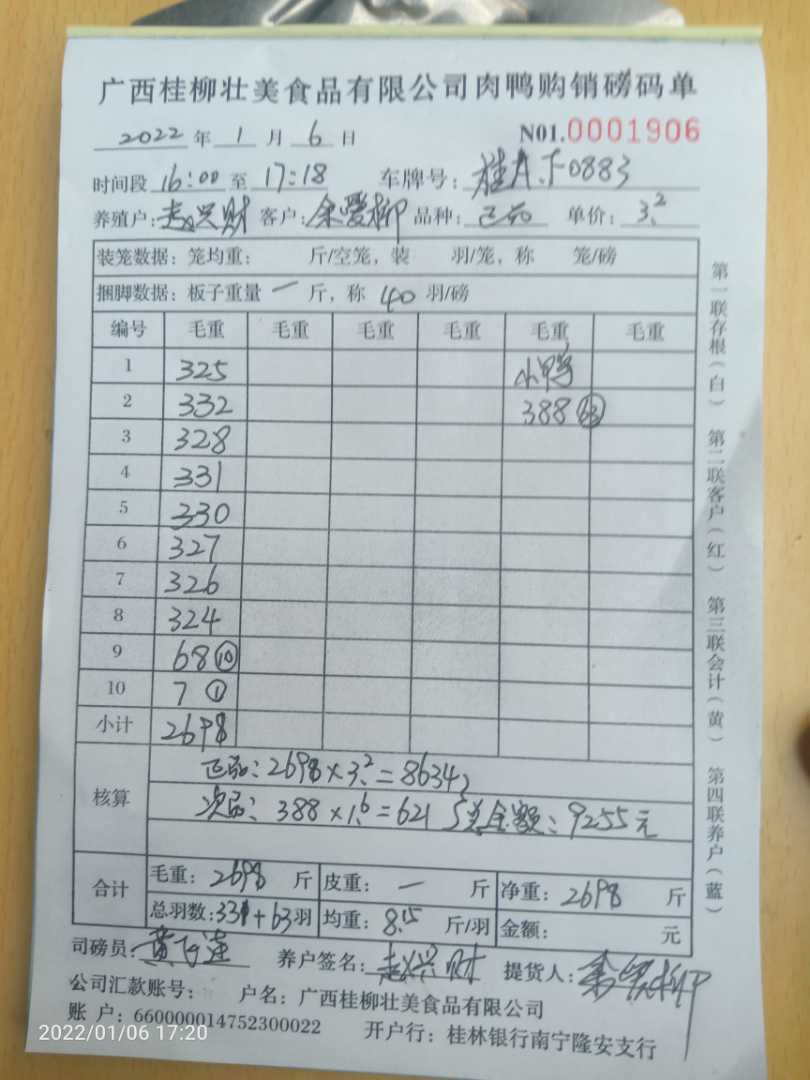 广西桂柳壮美食品有限公司肉鸭购销磅码单
2022 年 1 月 6 日 N01.0001906
时间段 16:00 至 17:18 车牌号: 桂A.F0883
养殖户: 赵兴财 客户: 余爱柳 品种: 正品 单价: 3.2
装笼数据: 笼均重: 斤/空笼, 装 羽/笼, 称 笼/磅
捆脚数据: 板子重量 一 斤, 称 40 羽/磅
编号 毛重 毛重 毛重 毛重 毛重 毛重
1 325 小鸭
2 332 388 63
3 328
4 331
5 330
6 327
7 326
8 324
9 68 10
10 7 1
小计 2698
核算 正品: 2698×3.2=8634
次品: 388×1.6=621 总金额: 9255元
合计 毛重: 2698 斤 皮重: 一 斤 净重: 2698 斤
总羽数: 331+63 羽 均重: 8.15 斤/羽 金额: 元
司磅员: 养户签名: 赵兴财 提货人: 余爱柳
公司汇款账号: 户名: 广西桂柳壮美食品有限公司
账 户: 660000014752300022 开户行: 桂林银行南宁隆安支行
第一联存根(白) 第二联客户(红) 第三联会计(黄) 第四联养户(蓝)
2022/01/06 17:20